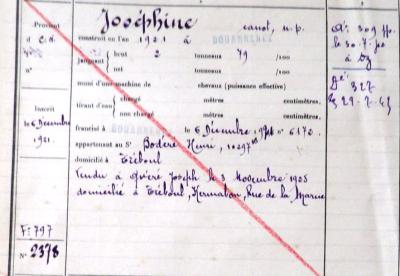 Provient
d C.d.
n°
Inscrit
le 6 Décembre
1921.
F: 797
N° 2378
Joséphine canot, n.p.
construit en l'an 1921 à
jaugeant
brut 2 tonneaux 79 /100
net tonneaux /100
muni d'une machine de chevaux (puissance effective)
tirant d'eau
chargé mètres centimètres.
non chargé mètres centimètres.
francisé à le 6 Décembre 1921 n° 6170.
appartenant au Sr Bodéré Henri, 10297
domicilié à Tréboul
Vendu à Quéré Joseph le 3 Novembre 1925
domicilié à Tréboul, Kermabon, Rue de la Marne
309
le 30.7.40
à Dz
De 327
29-7-45